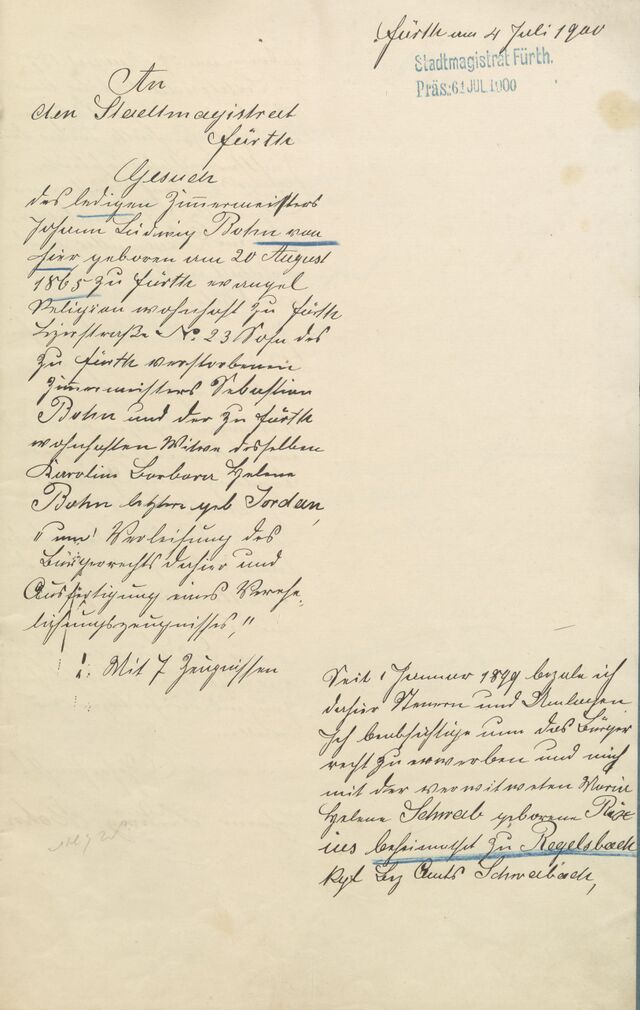 Fürth am 4 Juli 1900
Stadtmagistrat Fürth.
Präs: 6 JUL 1900
An
den Stadtmagistrat
Fürth
Gesuch
des ledigen Zimmermeisters
Johann Ludwig Bohn von
hier geboren am 20 August
1865 zu Fürth evangel
Religion wohnhaft zu Fürth
No. 23 Sohn des
zu Fürth verstorbenen
Zimmermeisters Sebastian
Bohn und der zu Fürth
wohnhaften Witwe desselben
Karoline Barbara Helene
Bohn letztere geb Jordan,
"um" Verleihung des
Bürgerrechts dahier und
Ausfertigung eines Verehe-
lichungszeugnisses,"
Mit 7 Zeugnissen
Seit 1 Januar 1899 bezale ich
dahier Steuern und Umlagen
Ich beabsichtige nun das Bürger
recht zu erwerben und mich
mit der verwitweten Maria
Helene Schwab geborene
beheimathet zu Regelsbach
kgl Bez Amts Schwabach,